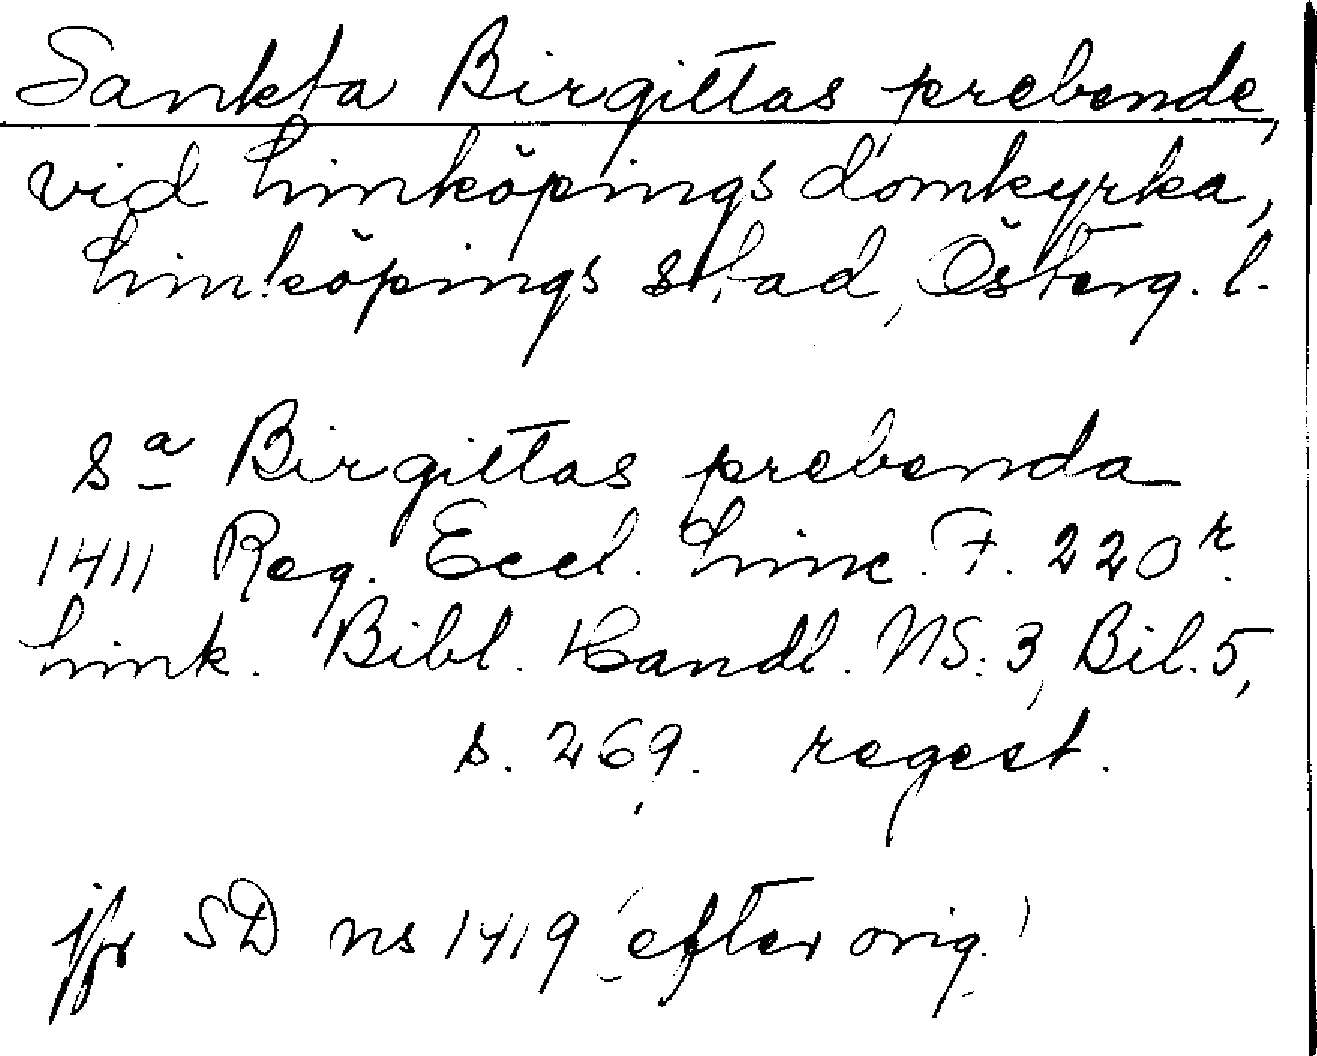 Sankta Birgittas prebende,
vid Linköpings domkyrka,
Linköpings stad, Österg. l.
Sa Birgittas prebenda
1411 Reg. Eccl. Linc. F. 220r.
Link. Bibl. Handl. NS: 3, Bil. 5,
s. 269. regest.
jfr SD ns 1419 (efter orig.)